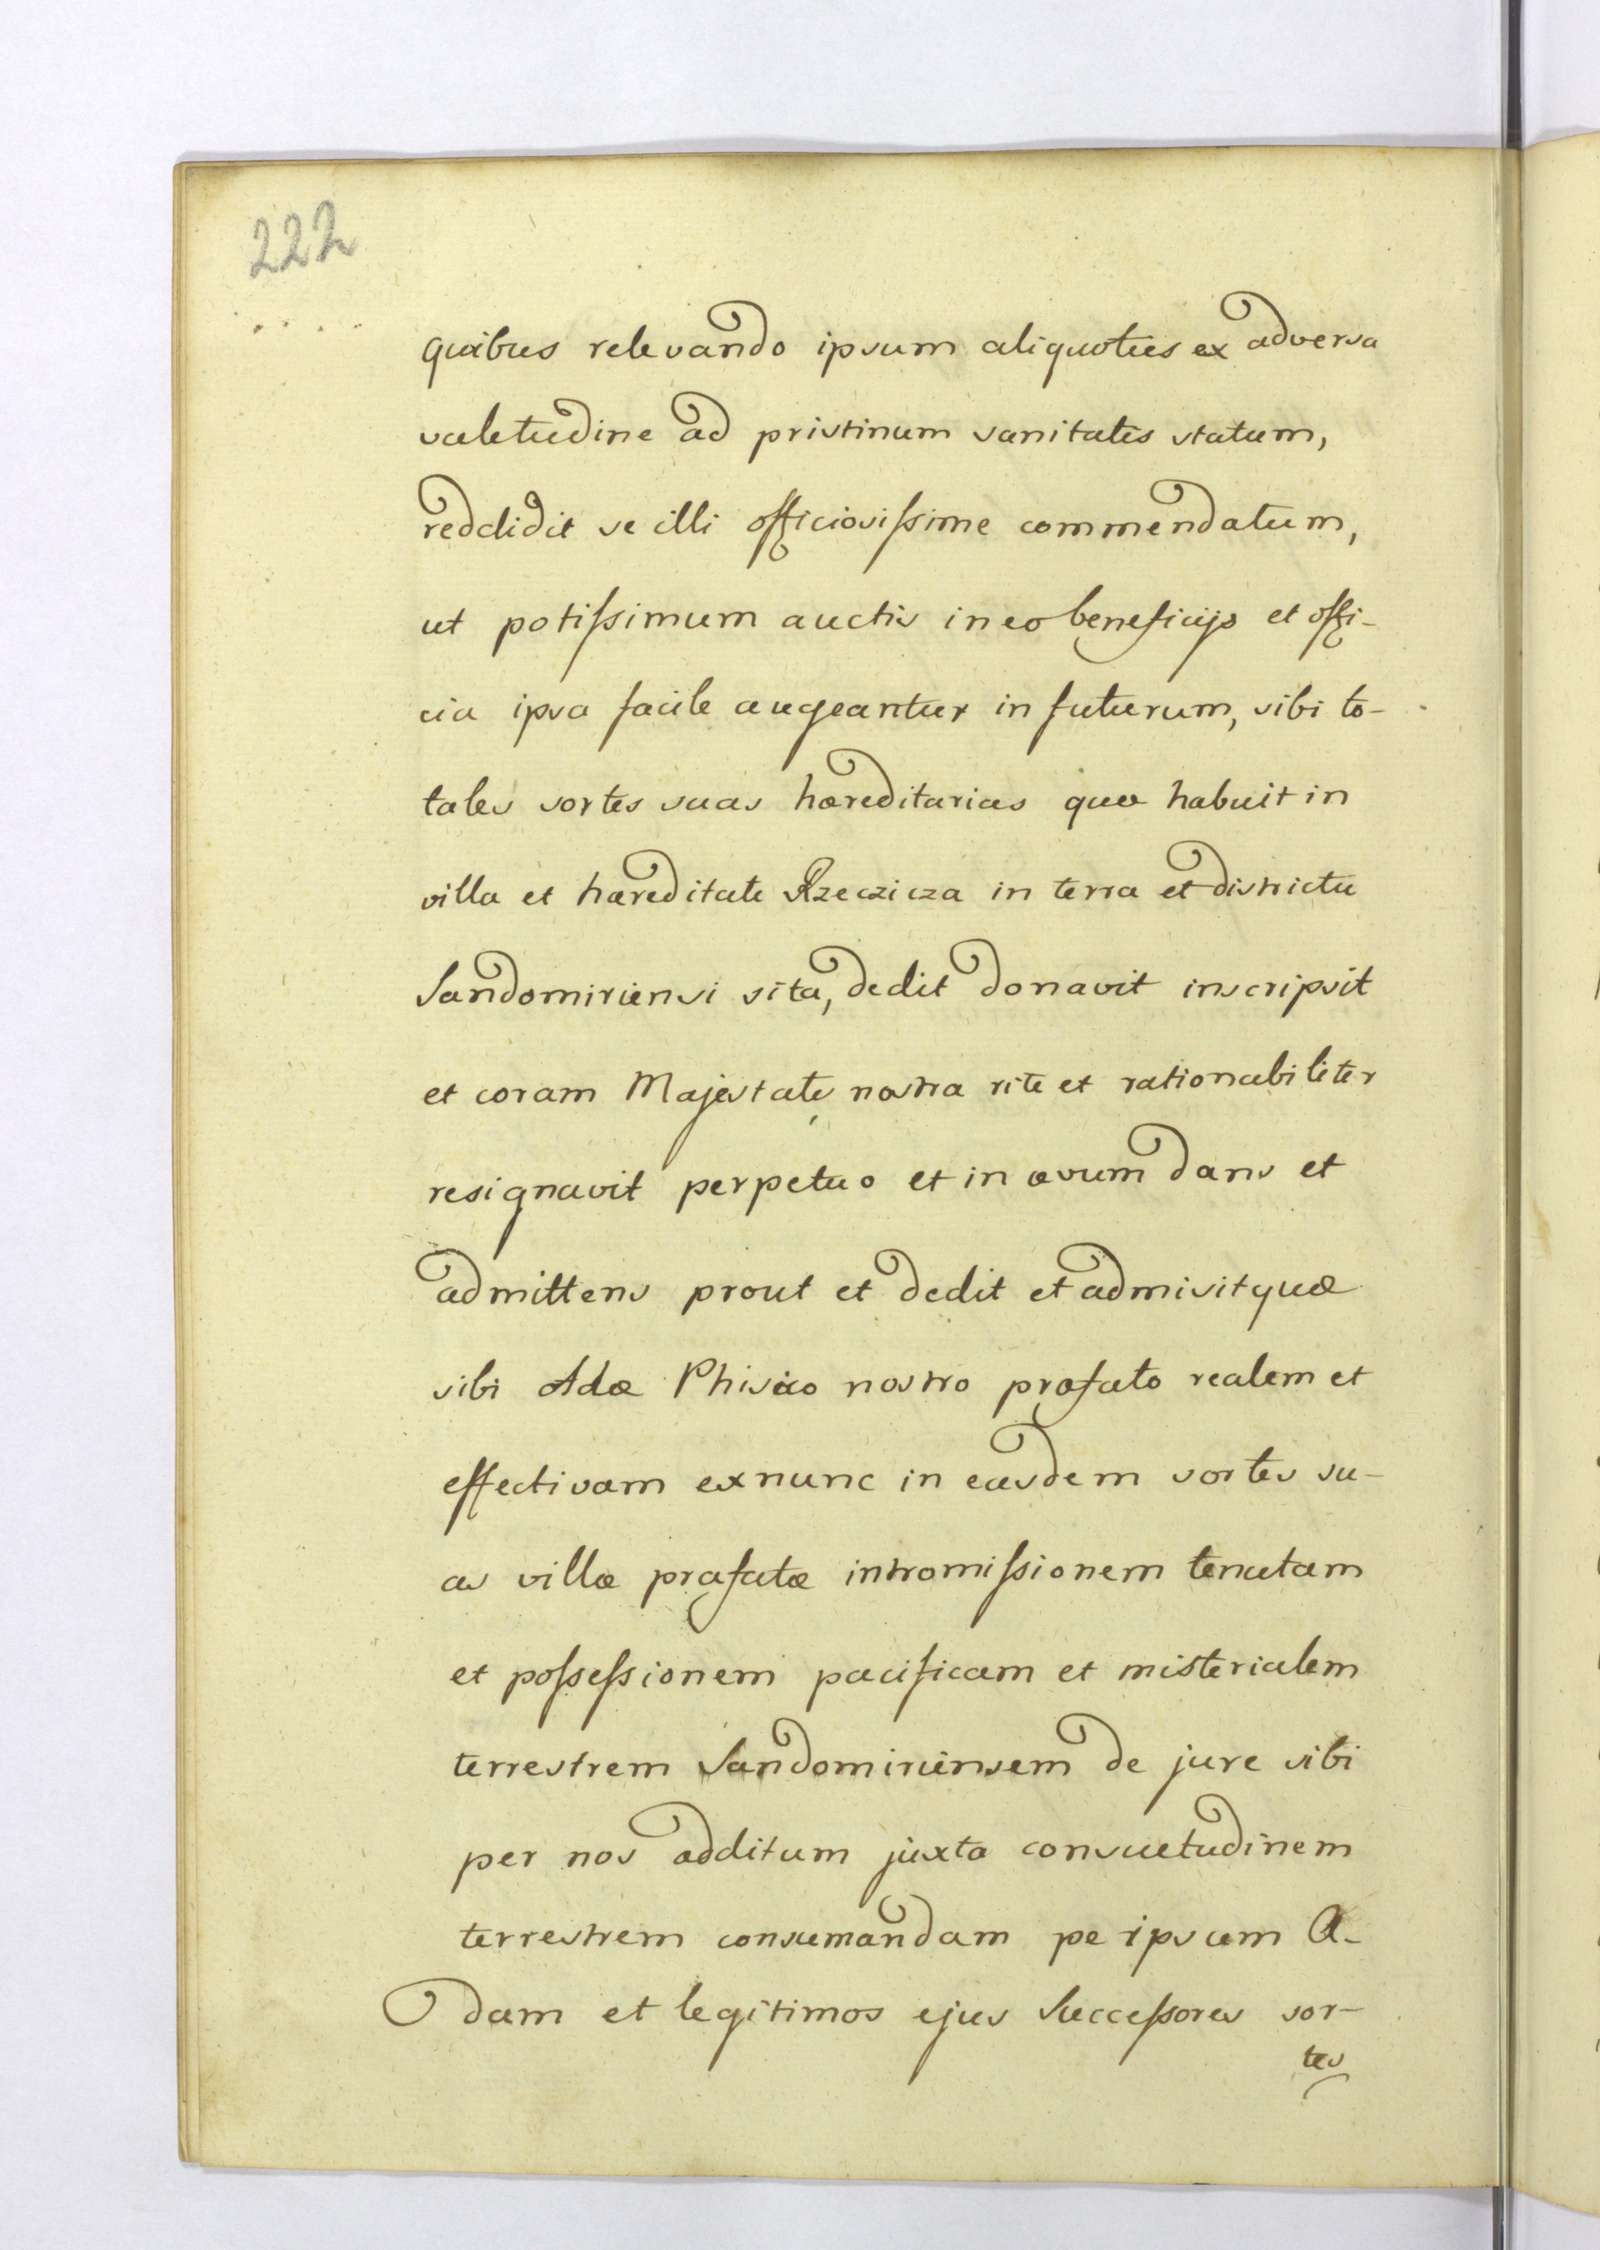 222
quibus relevando ipsum aliquoties ex adversa
valetudine ad pristinum sanitatis statum,
reddidit se illi officiosissime commendatum,
ut potissimum auctis in eo beneficijs et offi-
cia ipsa facile augeantur in futurum, sibi to-
tales sortes suas hæreditarias quæ habuit in
villa et hæreditate Rzeczicza in terra et districtu
Sandomiriensi sita, dedit donavit inscripsit
et coram Majestate nostra rite et rationabiliter
resignavit perpetuo et in ævum dans et
admittens prout et dedit et admisitquæ
sibi Adæ Phisico nostro præfato realem et
effectivam exnunc in easdem sortes su-
as villæ præfatæ intromissionem tenutam
et possessionem pacificam et misterialem
terrestrem Sandomiriensem de jure sibi
per nos additum juxta consuetudinem
terrestrem consumandam pe ipsum A-
dam et legitimos ejus Successores sor-
tes